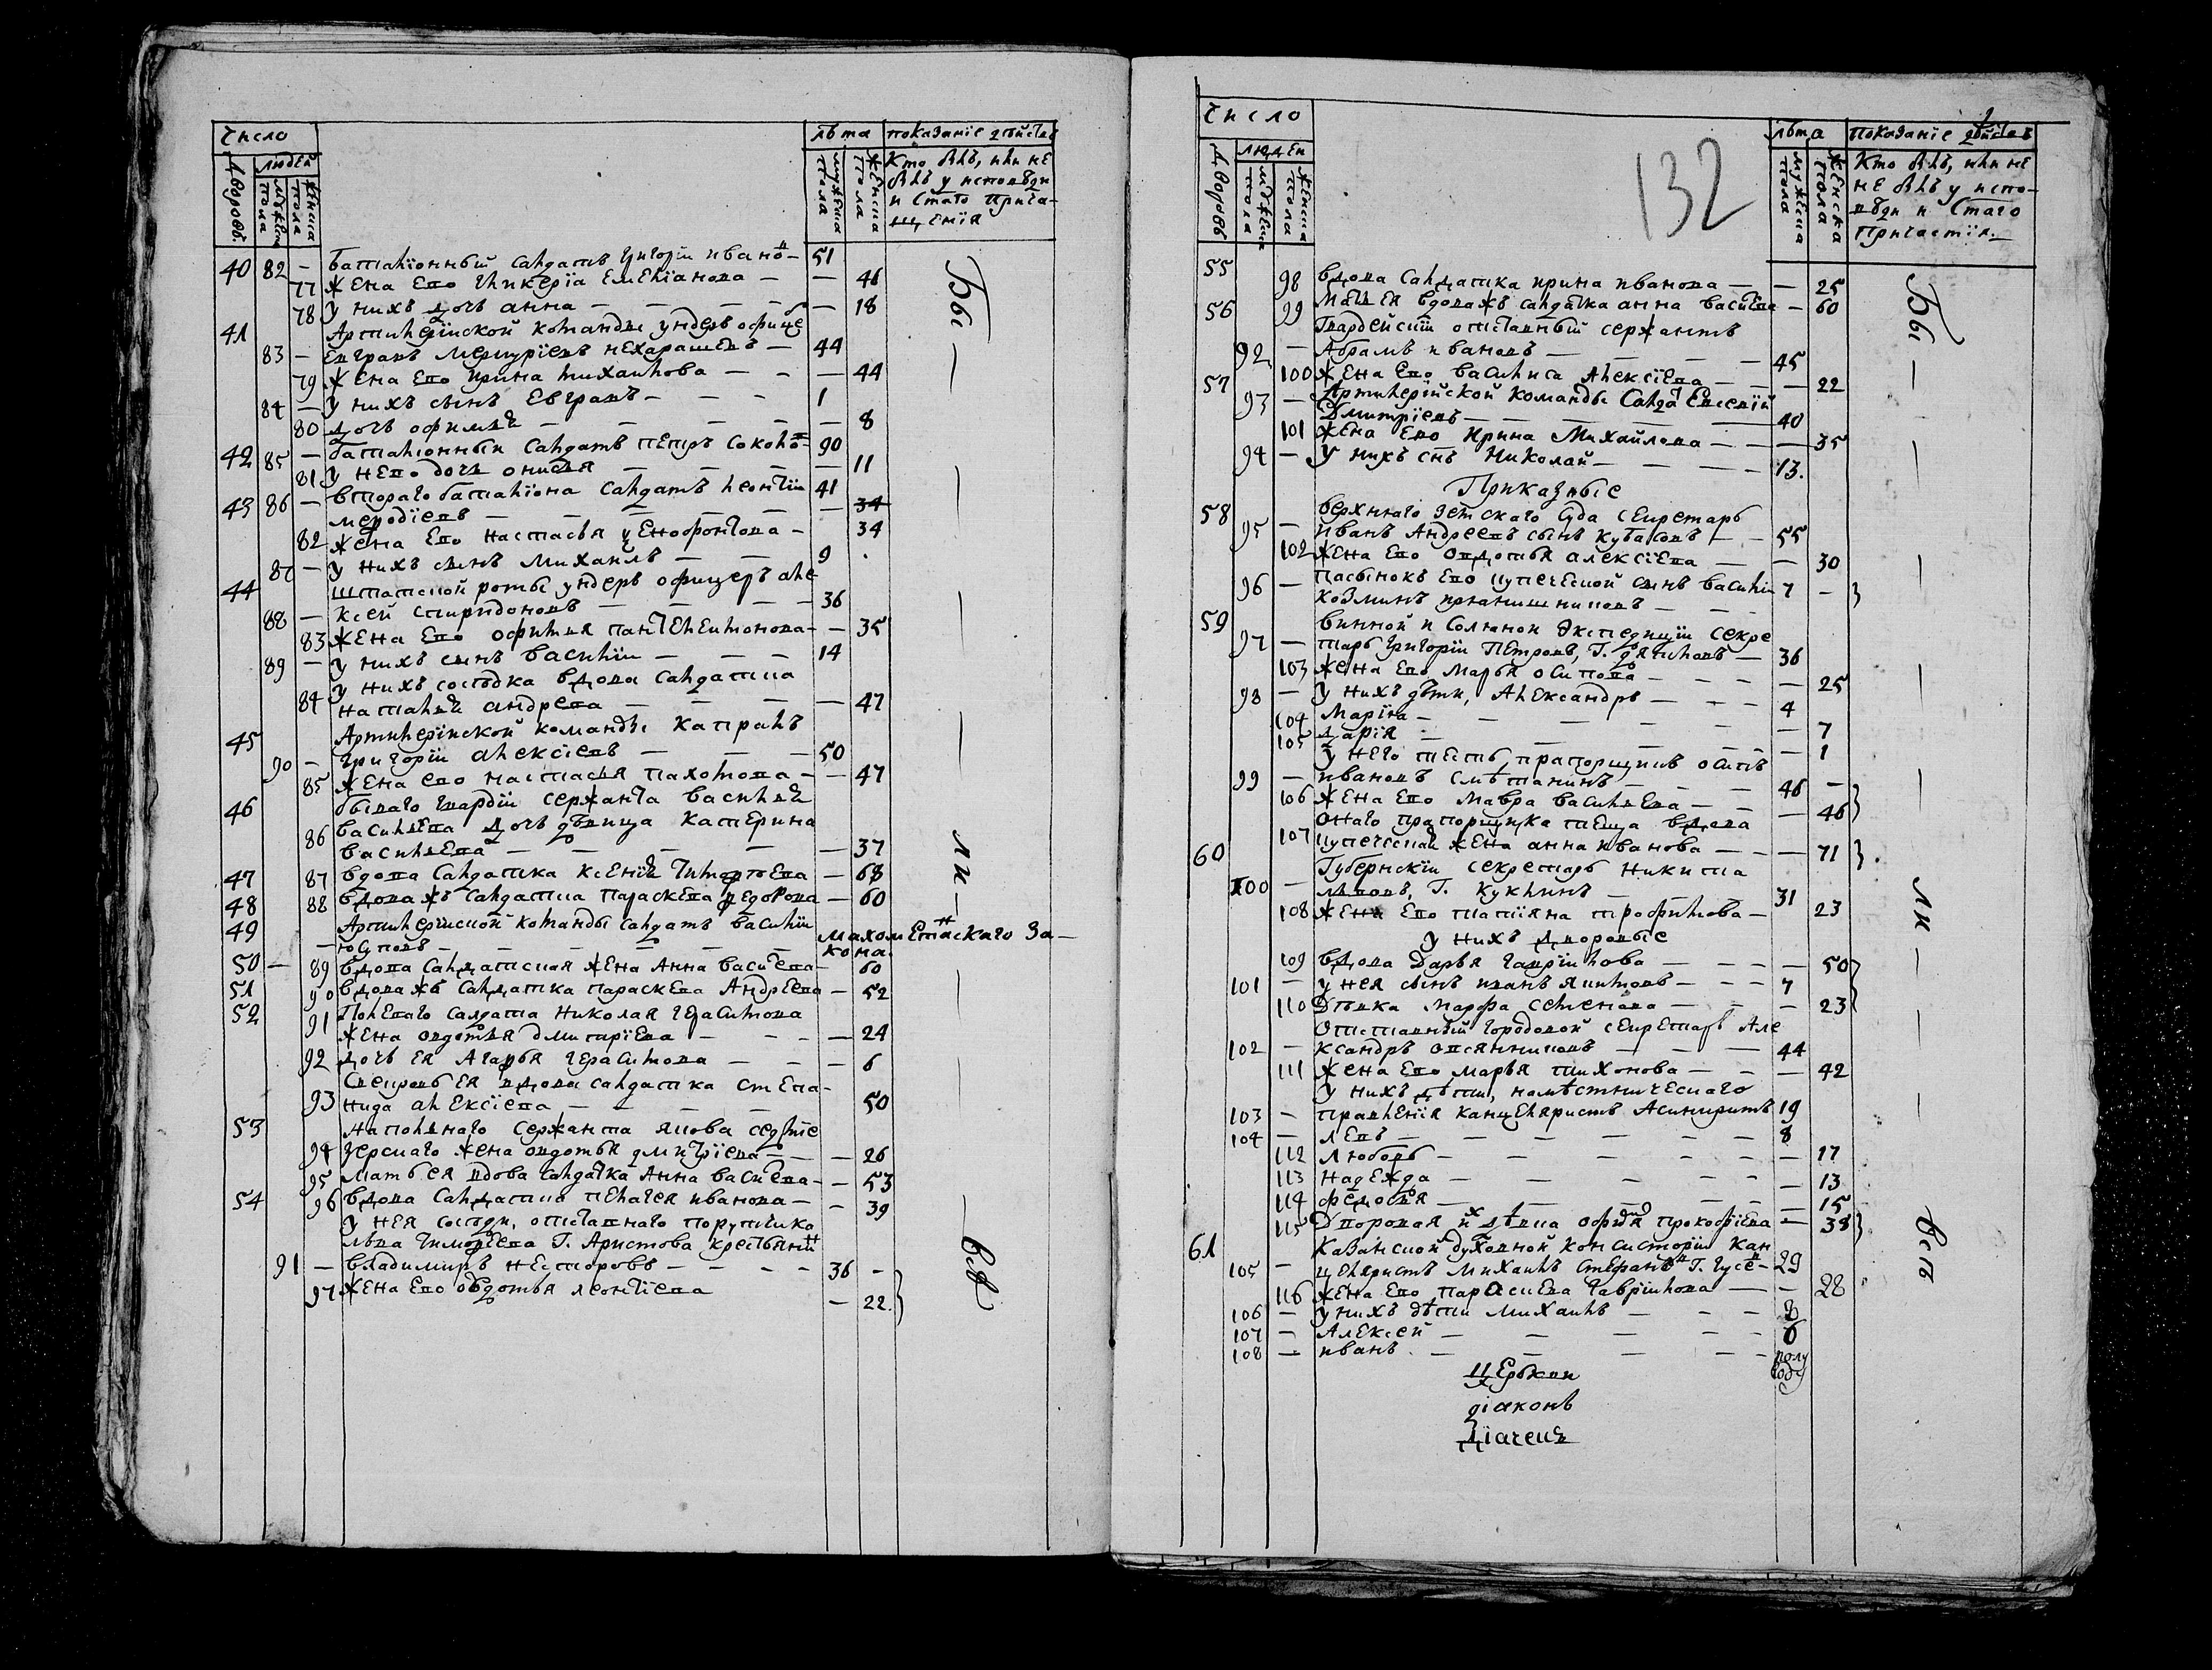 Число
лѣта показанїе дѣйств
Дворовъ людей
мужеска пола женска пола
мужеска пола женска пола
Кто былъ, или не
былъ у исповѣди
и стаго прича-
щенїя
40 82 – баталїонный салдатъ григорїи ивано́в – 51
77 жена ево гликерїа емелїанова – – 46
78 у нихъ дочь анна – – – – 18
41 Артилерїйской команды ундеръ офице
83 – евграѳъ меркурїевъ – 44
79 жена ево ирина михаилова – – – 44
84 – у нихъ сынъ Евграѳъ – – – 1
80 дочь офимья – – – – 8
42 85 – баталїонный салдатъ петръ соколо́в 90
81 у него дочь онисья – – – – 11
43 86 – втораго баталїона салдатъ леонтїи 41
меѳодїевъ – – – – – 34
82 жена ево настасья ѯенофонтова – 34
87 – у нихъ сынъ михаилъ – – 9
44 штатской роты ундеръ офицеръ але
88 – ксей спиридоновъ – – – – 36
83 жена ево офимья пантелеимонова – – 35
89 – у нихъ сынъ василїи – – – 14
у нихъ сосѣдка вдова салдатка
84 наталья андреева – – – – 47
45 Артилерїйской команды капралъ
90 – григорїи алексїевъ – – – 50
85 жена ево настасья пахомова – – 47
46 бываго гвардїи сержанта василья
86 васильева дочь дѣвица катерина
васильева – – – – – 37
47 87 вдова салдатка ксенїя тимоѳеева – 68
48 88 вдова жъ салдатка параскева ѳедорова – 60
49 Артилерїйской команды салдатъ василїи
– юсуповъ – – – – – махометанскаго за-
кона.
50 – 89 вдова салдатская жена Анна васи́лева – 60
51 90 вдова жъ салдатка параскева Андреева – 52
52 Полеваго салдата Николая герасимова
91 жена овдотья дмитрїева – – – – 24
92 дочь ея Агаѳья герасимова – – – 6
свекровь ея вдова салдатка степа-
93 нида алексїева – – – – 50
53 наполнаго сержанта якова
94 жена овдотья дмитрїева – – – 26
95 мать ея вдова салдатка анна василева – – 53
54 96 вдова салдатка пелагея иванова – – 39
у нея сосѣди, отставнаго порутчика
льва тимоѳеева Г. Аристова крестьяни́н
91 – владимиръ несторовъ – – – – 36 –
97 жена ево овдотья леонтїева – 22.
Бы – – – – – ли – – – – всѣ
Число
132
лѣта показанїе дѣйствъ
Дворовъ людей
мужеска пола женска пола
мужеска пола женска пола
Кто былъ, или не
не былъ у испо-
вѣди и стаго
причастїя.
55 98 вдова салдатка ирина иванова – – 25
56 99 вдова жъ салдатка анна василева – 60
Гвардейскїй отставный сержантъ
92 – Абрамъ ивановъ – – – – 45
100 жена ево василиса алексїева – – – 22
57 Артилерїйской команды салда́т Евсевїй
93 – Дмитрїевъ – – – – – 40
101 жена ево Ирина Михайлова – – – 35
94 – у нихъ снъ Николай – – – – 13.
Приказные
58 верхняго земскаго суда секретарь
95 – иванъ андреевъ сынъ кутасовъ – – 55
102 жена ево овдотья алексїева – – 30
96 – пасынокъ ево купеческой сынъ василїи 7 –
козминъ – – –
59 винной и соляной экспедицїи секре
97 – тарь григорїи Петровъ, Г. – 36
103 жена ево марья осипова – – – – 25
98 – у нихъ дѣти, Александръ – – – 4
104 Марїя – – – – – – 7
105 дарїя – – – – – – 1
у него тесть, прапорщикъ осипъ
99 – ивановъ сметанинъ – – – 46 –
106 жена ево мавра васильева – – – 46
онаго прапорщика теща вдова
107 купеческая жена анна иванова – – – 71
60 Губернскїи секретарь никита
100 – львовъ, Г. Куклинъ – – – 31
108 жена ево татїяна трофимова – 23
у нихъ дворовые
109 вдова дарья гаврїилова – – – – 50
101 – у нея сынъ иванъ якимовъ – – – 7
110 Дѣвка марфа семенова – – – 23
отставный городовой секретарь Але
102 – ксандръ овсянниковъ – – – 44
111 жена ево марья тихонова – – – 42
у нихъ дѣти, намѣстническаго
103 – правленїя канцеляристъ Асинкритъ 19
104 – левъ – – – – – – 8
112 любовь – – – – – – 17
113 надежда – – – – – 13
114 федосья – – – – – 15
115 Дворовая и́хъ дѣвка офимья прокофїева – 38
61 Казанской духовной консисторїи кан
105 – целяристъ михаилъ стефано́въ Г. гусе́в – 29
116 жена ево параскева гаврїилова – – 28
106 – у нихъ дѣти михаилъ – – – 8
107 – Алексей – – – – – 6
108 – иванъ – – – – – полу
года
Церькви
дїаконъ
Дїачекъ
Бы – – – – – – ли – – – всѣ